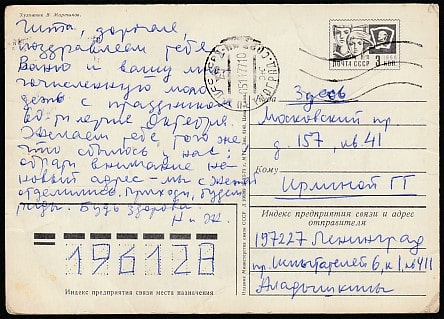 Художник В. Мартынов.
Тита, дорогая,
поздравляем тебя,
Ваню и вашу мно-
гочисленную моло-
дежь с праздником
60-летие Октября.
Желаем тебе того же,
что сбылось у нас:
обрати внимание на
новый адрес — мы с Женей
отделились. Приходи, будем
рады. Будь здорова.
Н и Ж
ПОЧТА СССР
3 коп.
Куда
Здесь
Московский пр
д. 157, кв. 41
Кому
Ирминой ГГ
Индекс предприятия связи и адрес
отправителя
197227 Ленинград
пр. Испытателей 6, к 1, кв 411
Аладышкины
196128
Индекс предприятия связи места назначения